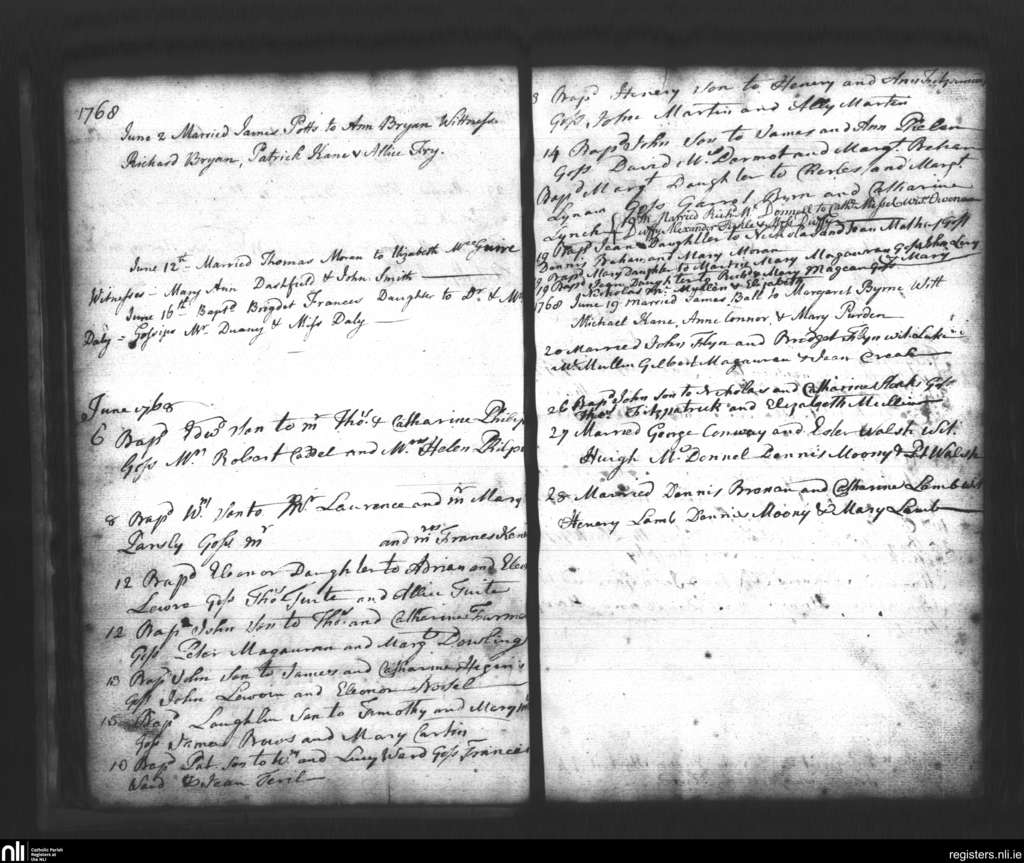 1768
June 2 Married James Potts to Ann Bryan Wittness
Richard Bryan, Patrick Kane & Allice Fry.
June 12th - Married Thomas Moran to Elizabeth
Witnesses - Mary Ann Dashfield & John Smith
June 16th Baptd Brigdet Frances Daughter to Dr &
Daly = Gossips Mr Duany & Miss Daly
June 1768
6 Bapd Edwd Son to mr Thos & Catharine Philips
Goss Mr Robart Caddel and Mrs Helen Philps
8 Bapd Wm Son to Mr Laurence and Mary
Pansly Goss Mr and mrs Frances
12 Bapd Eleonor Daughter to Adrian and
Lewra Goss Thos Tuite and Allice Tuite
12 Bapd John Son to Thos and Catharine
Goss Peter Magauran and Margt Dowling
13 Bapd John Son to James and Catharine
Goss John Leworn and Eleonor
15 Bapd Laughlin Son to Timothy and Mary
Goss James and Mary Cartin
10 Bapd Pat Son to Wm and Lucy Ward Goss Frances
Ward & Jean
Bapd Henery Son to Henery and Ann
Goss Johne Martin and Ally Martin
14 Bapd John Son to James and Ann Phelan
Goss David Mc Dormot and Margt Behan
Bapd Margt Daughter to Cherles and Margt
Lynch Goss Garrot Byrn and Catharine
Lynch
19th Married Richd Mc Donnell to Cathr Missel Witt Owen
Duffy Alexander & Duffy
19 Bapd Jean Daughter to Nicholas and Joan Mathews Goss
Dennis Behan and Mary Moran
Bapd Mary Daughter to and Mary Magauran Goss John & Mary
19 Bapd Jean Daughter to & Mary Magean Goss
Nicholas Mc Mullin & Elizabeth
1768 June 19 Married James Ball to Margaret Byrne Witt
Michael Kane, Anne Connor, & Mary Purden
20 Married John Flyn and Bridget Flyn wit Luke
Mc Mullen Gilbert Magauran & Jean Creak
26 Bapd John Son to Nicholas and Catharine Goss
Thos Fitzpatrick and Elizabeth Mullin
27 Married George Conway and Ester Walsh Wit
Huigh Mc Donnel Dennis Moony & Pt Walsh
28 Married Dennis Bronan and Catharine Lamb Wit
Henery Lamb Dennis Moony & Mary Lamb
nli Catholic Parish
Registers at
the NLI
registers.nli.ie